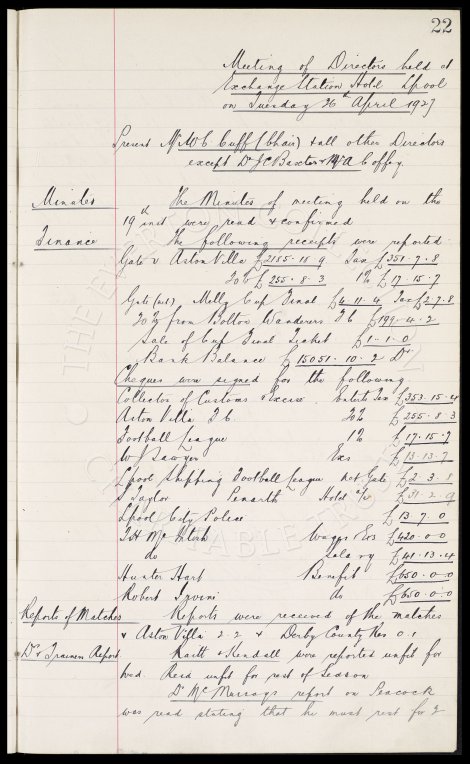 22
Meeting of Directors held at
Exchange Station Hotel Lpool
on Tuesday 26th April 1927
Present Mr W C Cuff (Chair) & all other Directors
except Dr J C Baxter & Mr A Coffey.
Minutes The Minutes of meeting held on the
19th inst were read & confirmed
Finance The following receipts were reported
Gate v Aston Villa £2185.18.9 Tax £351.7.8
20% £255.8.3 1% £17.15.7
Gate (net) Molly Cup Final £4.11.4 Tax £2.7.8
20% from Bolton Wanderers F C £199.4.2
Sale of Cup Final Ticket £1.1.0
Bank Balance £15051.10.2 Dr
Cheques were signed for the following
Collector of Customs & Excise Entts Tax £353.15.4
Aston Villa F C. 20% £255.8.3
Football League 1% £17.15.7
W Sawyer Exs £13.13.7
Lpool Shipping Football League net Gate £2.3.8
S Taylor Penarth Hotel a/c £31.2.9
Lpool City Police £13.7.0
T H McIntosh Wages Exs £420.0.0
do Salary £41.13.4
Hunter Hart Benefit £650.0.0
Robert Irvine do £650.0.0
Reports of Matches Reports were received of the matches
v Aston Villa 2.2 v Derby County Res 0.1
Dr & Trainers Report Raitt & Kendall were reported unfit for
Wed. Reid unfit for rest of Season
Dr McMurrays report on Peacock
was read stating that he must rest for 2